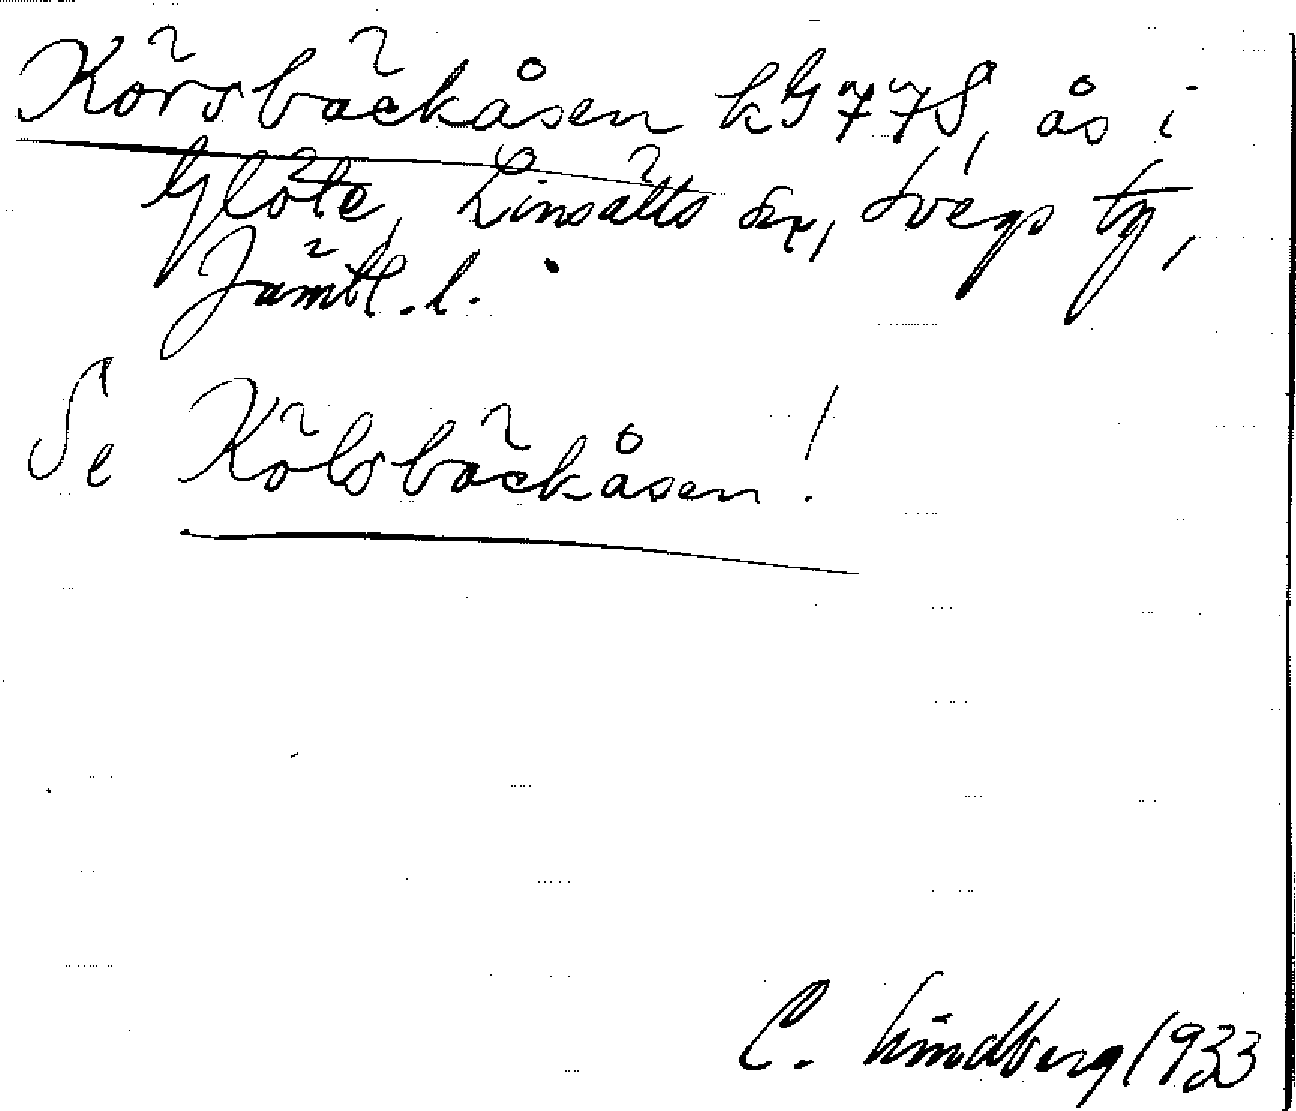 Körsbäckåsen kG778, ås i
Glöte, Linsälls sn, Svegs tg,
Jämtl. l.
Se Kölsbäckåsen!
C. Lindberg 1933